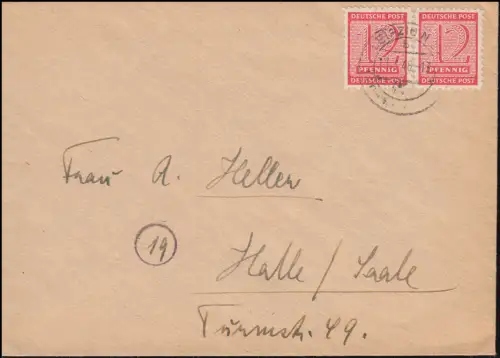 DEUTSCHE POST DEUTSCHE POST
12 12
PFENNIG PFENNIG
DEUTSCHE POST DEUTSCHE POST
Frau A. Heller
19
Halle / Saale
Turmstr. 49.